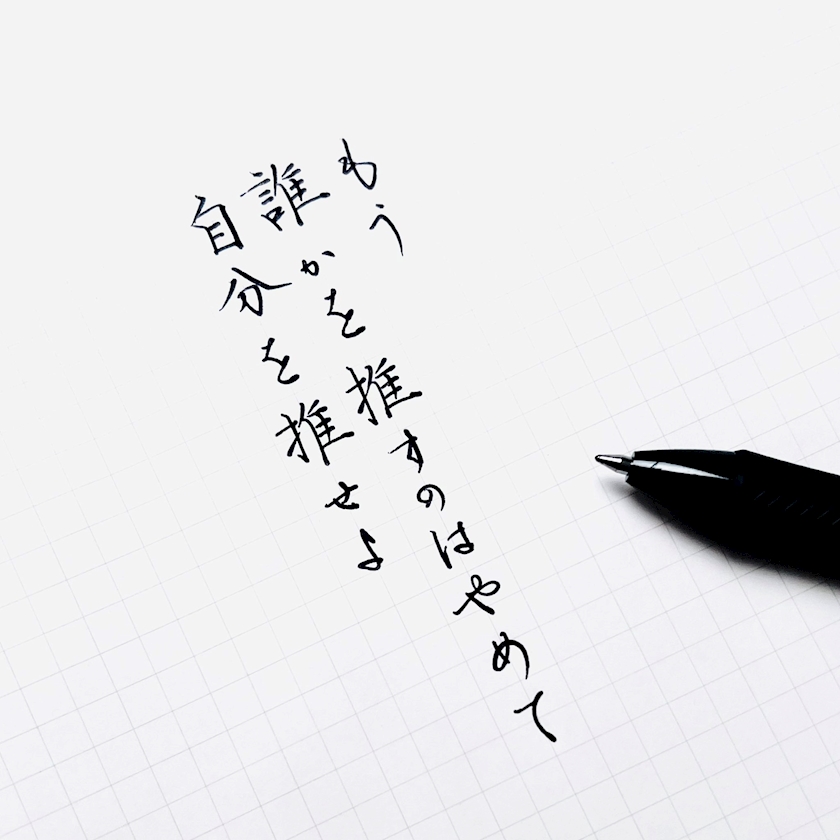 もう
誰かを推すのはやめて
自分を推せよ